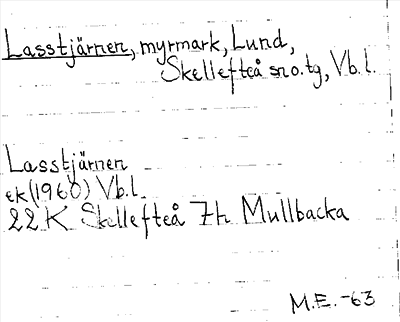 Lasstjärnen, myrmark, Lund,
Skellefteå sn o. tg, Vb. l.
Lasstjärnen
ek (1960) Vb. l.
22 K Skellefteå 7h Mullbacka
M.E. -63